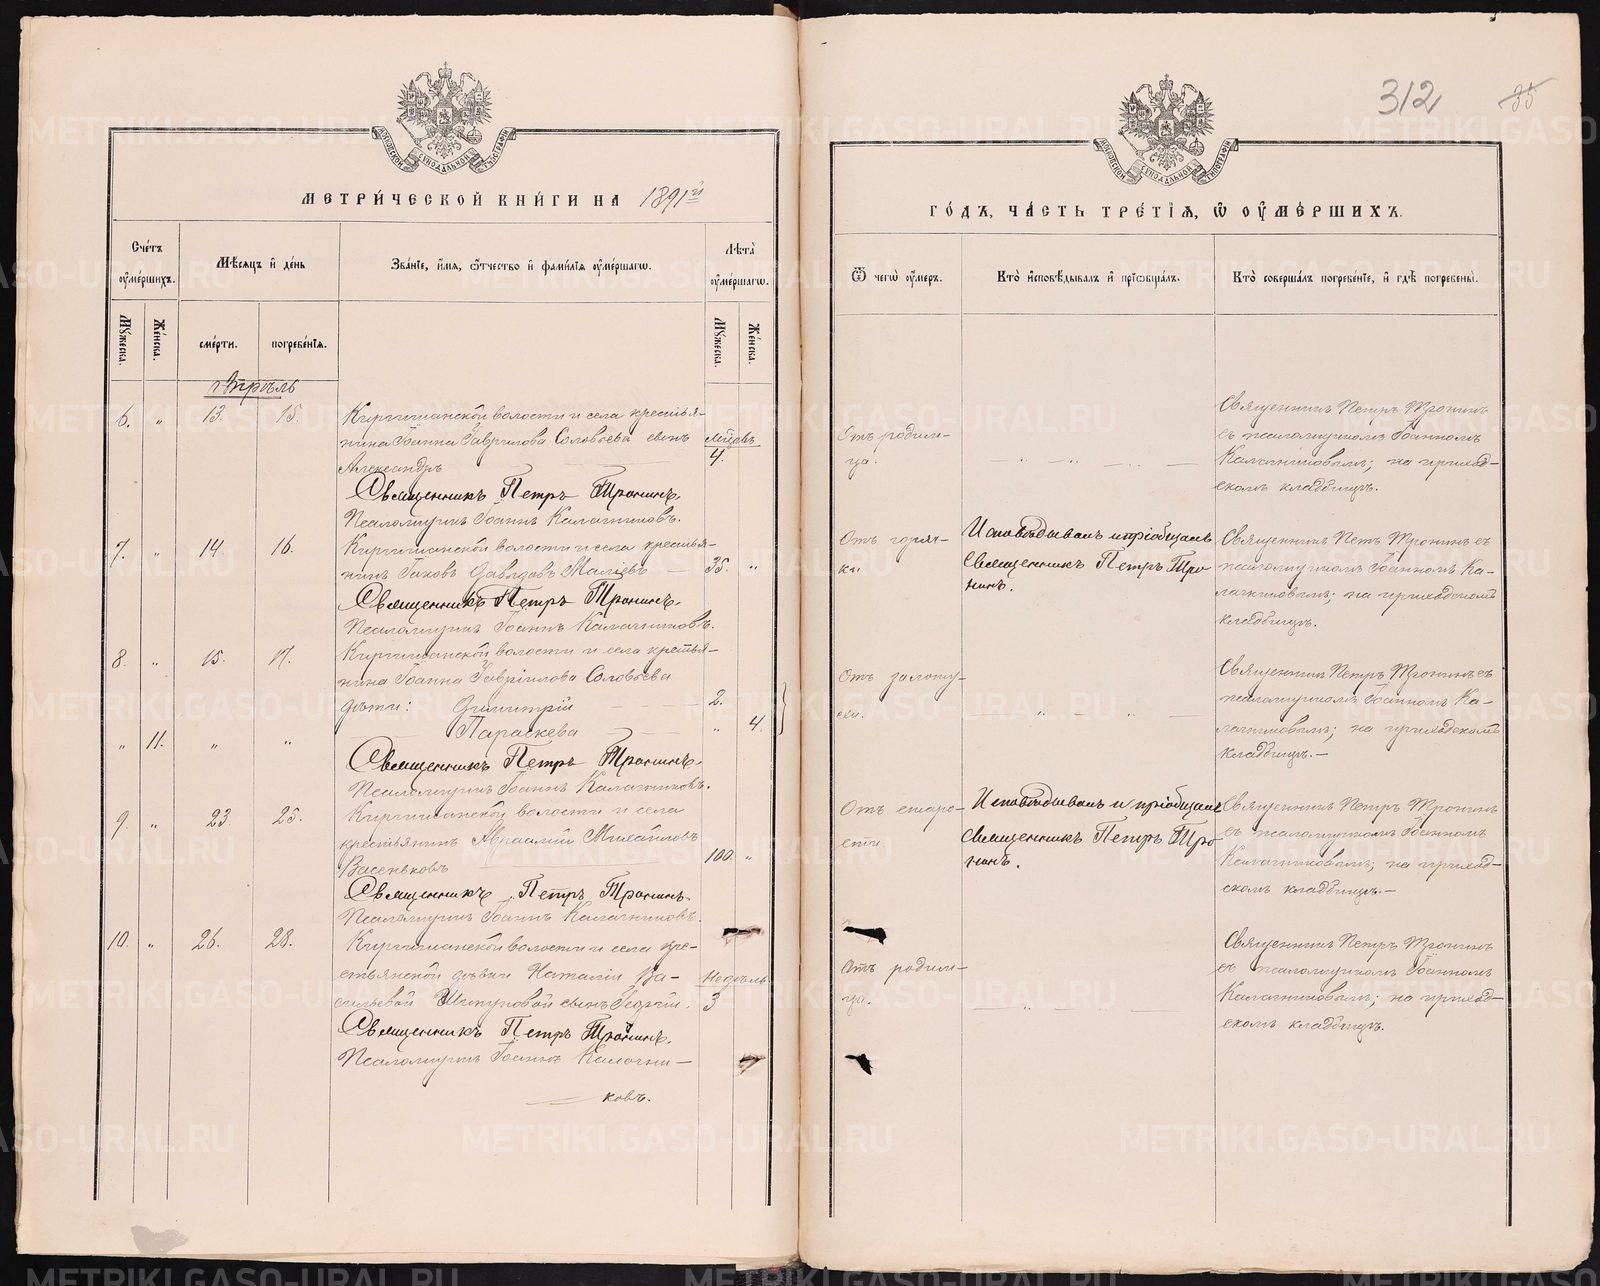 МЕТРИ́ЧЕСКОЙ КНИ́ГИ НА 1891й
Сче́тъ ᲂу҆ме́ршихъ.
Мѣ́сяцъ и҆ де́нь
Зва́нїе, и҆́мя, ѻ҆́тчество и҆ фами́лїя ᲂу҆ме́ршагѡ.
Лѣ́та ᲂу҆ме́ршагѡ.
Му́жеска.
Же́нска.
сме́рти.
погребе́нїя.
Му́жеска.
Же́нска.
Апрѣль
6. „ 13. 15. Киргишанской волости и села крестья-
нина Іоанна Гаврилова Соловьева сынъ
Александръ
мѣсяцовъ
4.
Священникъ Петръ Тронинъ.
Псаломщикъ Іоаннъ Калачниковъ.
7. „ 14. 16. Киргишанской волости и села крестья-
нинъ Іаковъ Давыдовъ Маліевъ — 35. „
Священникъ Петръ Тронинъ.
Псаломщикъ Іоаннъ Калачниковъ.
8. „ 15. 17. Киргишанской волости и села крестья-
нина Іоанна Гавріилова Соловьева
дѣти: Димитрій — 2.
„ 11. „ „ Параскева — „ 4.
Священникъ Петръ Тронинъ.
Псаломщикъ Іоаннъ Калачниковъ.
9. „ 23. 25. Киргишанской волости и села
крестьянинъ Авраамій Михайловъ
Васеньковъ 100. „
Священникъ Петръ Тронинъ.
Псаломщикъ Іоаннъ Калачниковъ.
10. „ 26. 28. Киргишанской волости и села кре-
стьянской дѣвки Наталіи Ва-
сильевой Шипуновой сынъ Георгій.
недѣль
3
Священникъ Петръ Тронинъ.
Псаломщикъ Іоаннъ Калачни-
ковъ.
312
35
ГО́ДЪ, ЧА́СТЬ ТРЕ́ТЇЯ, Ѡ҆ ОУ҆МЕ́РШИХЪ.
Ѿ чегѡ̀ ᲂу҆́меръ.
Кто̀ и҆сповѣ́дывалъ и҆ прїѡбща́лъ.
Кто̀ соверша́лъ погребе́нїе, и҆ гдѣ̀ погребены̀.
Отъ родим-
ца.
Священникъ Петръ Тронинъ
съ псаломщикомъ Іоанномъ
Калачниковымъ; на приход-
скомъ кладбищѣ.
Отъ горяч-
ки.
Исповѣдывалъ и пріобщалъ
Священникъ Петръ Тро-
нинъ.
Священникъ Петръ Тронинъ съ
псаломщикомъ Іоанномъ Ка-
лачниковымъ; на приходскомъ
кладбищѣ.
Отъ золоту-
хи.
Священникъ Петръ Тронинъ съ
псаломщикомъ Іоанномъ Ка-
лачниковымъ; на приходскомъ
кладбищѣ. —
Отъ старо-
сти.
Исповѣдывалъ и пріобщалъ
Священникъ Петръ Тро-
нинъ.
Священникъ Петръ Тронинъ
съ псаломщикомъ Іоанномъ
Калачниковымъ; на приход-
скомъ кладбищѣ. —
Отъ родим-
ца.
Священникъ Петръ Тронинъ
съ псаломщикомъ Іоанномъ
Калачниковымъ; на приход-
скомъ кладбищѣ.
METRIKI.GASO-URAL.RU